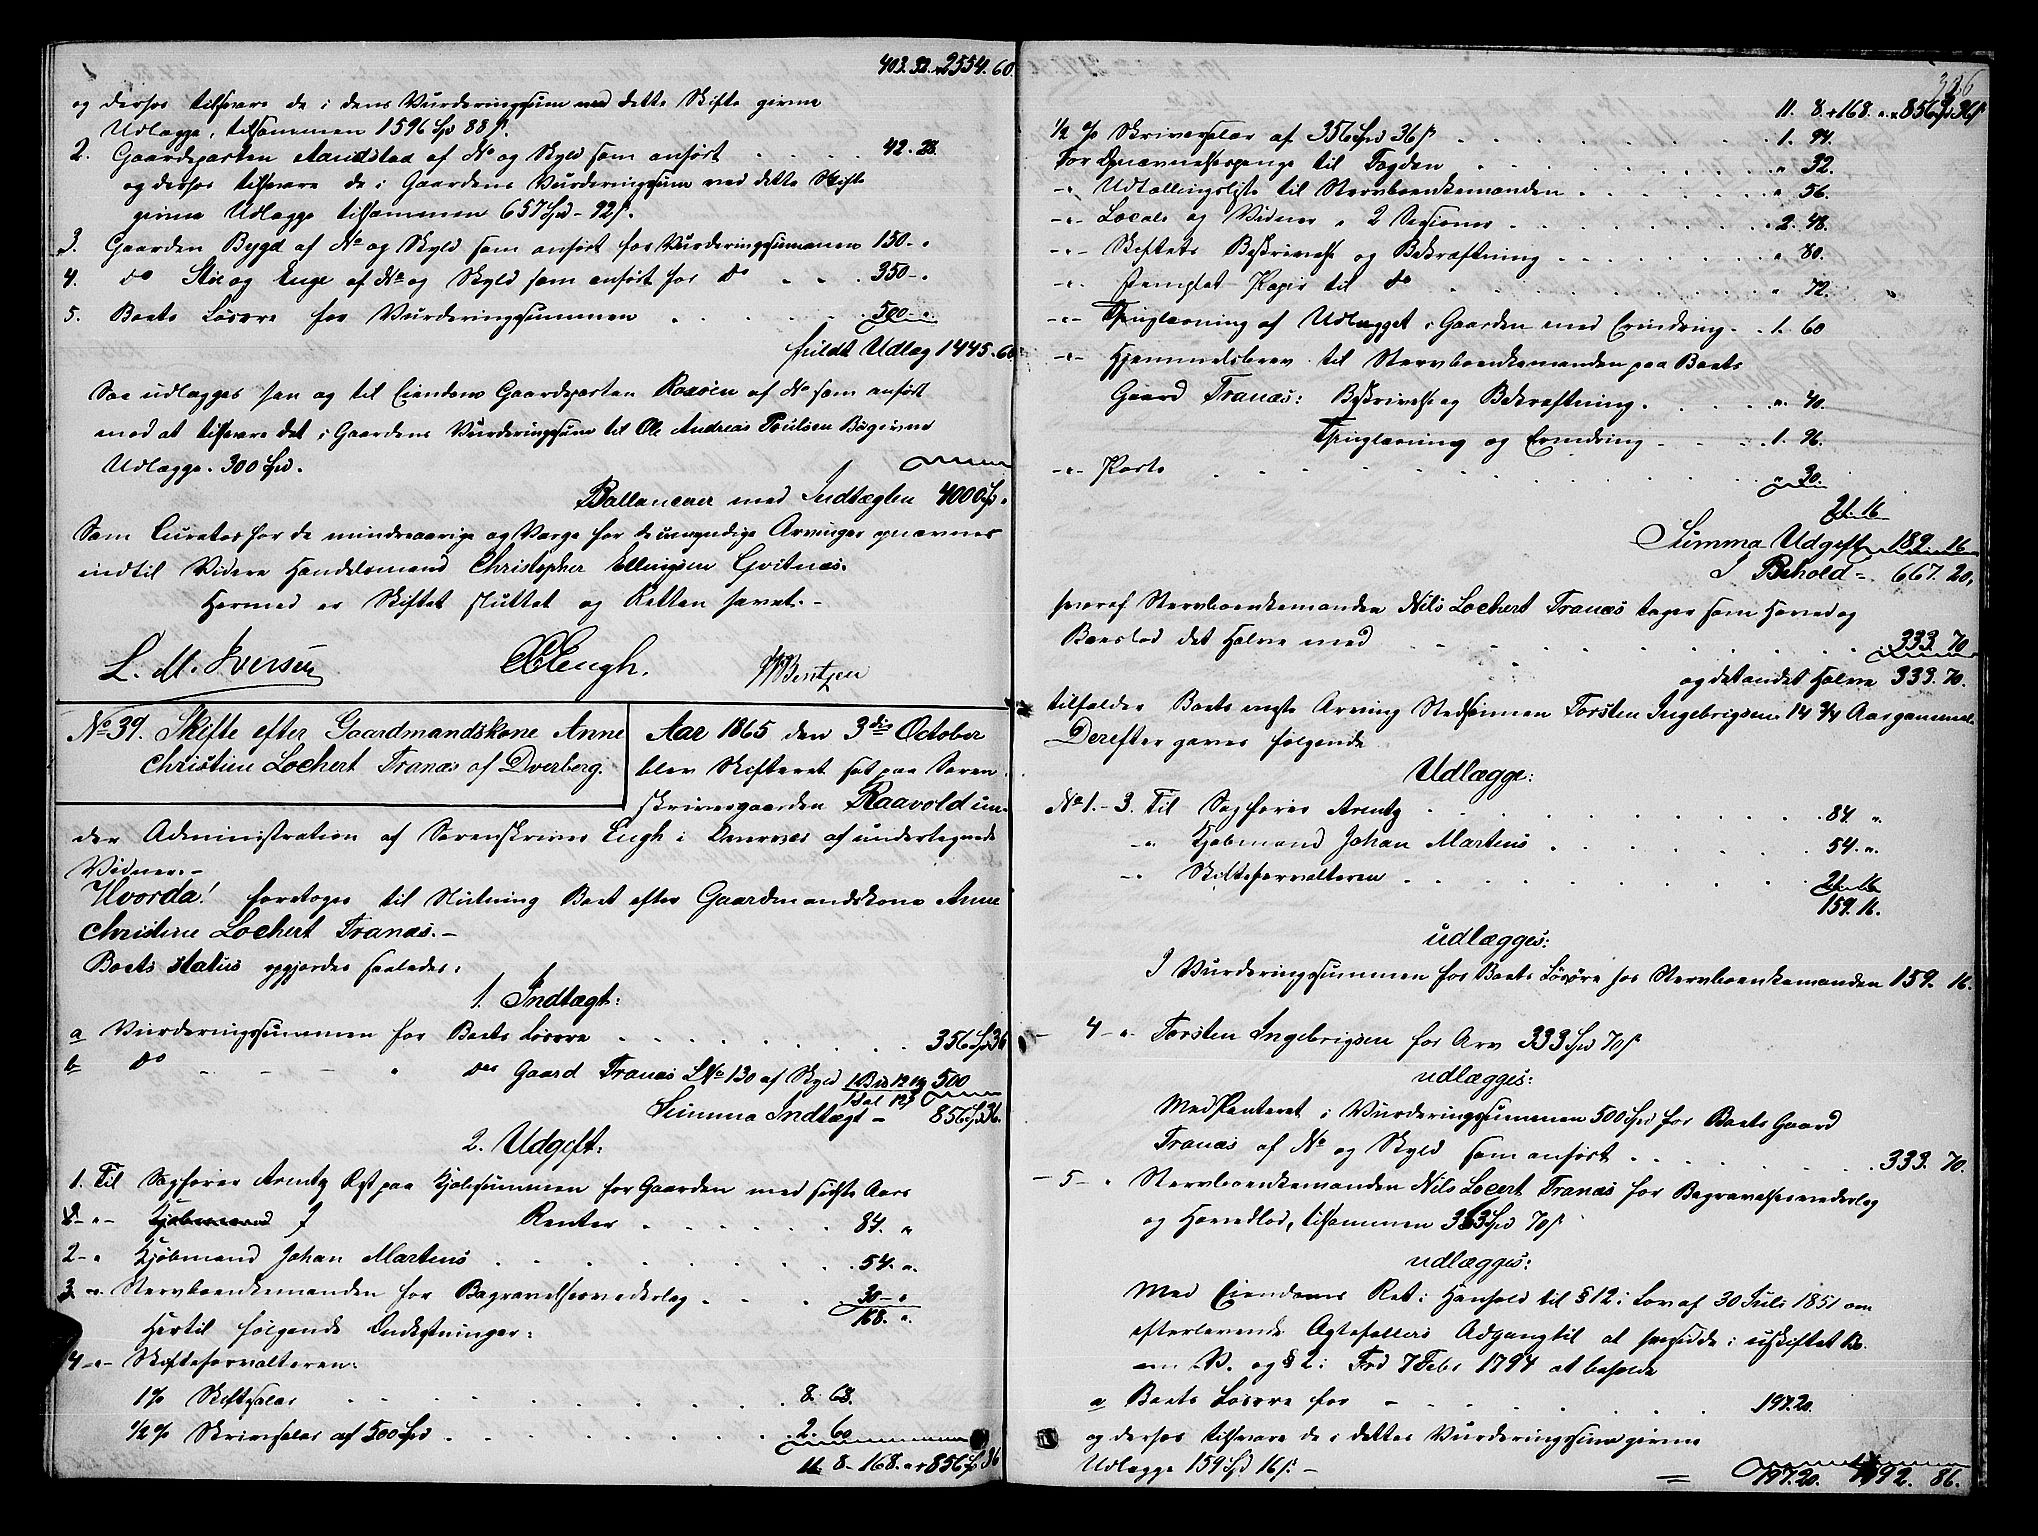 403. 32. 2554. 60
og derfor tilsvare de i dens Vurderingssum med dette Skifte givne
Udlægge, tilsammen 1596 Spd 88 s.
2. Gaardeparten Aandstad af No og Skyld som anført . . . . 42. 28.
og derfor tilsvare de i Gaardens Vurderingssum ved dette Skifte
givne Udlægge tilsammen 657 Spd - 92 s.
3. Gaarden Bygd af No og Skyld som anført for Vurderingssummen 150 - "
4. do Stie og Enge af No og Skyld som anført for do . . . 350 - "
5. Boets Løsøre for Vurderingssummen . . . . 500 - "
fuldt Udlæg 1445. 60
Saa udlægges han og til Eiendom Gaardeparten Raasen af No som anført
mod at tilsvare det i Gaardens Vurderingssum til Ole Andreas Poulsen Bø givne
Udlægge. 300 Spd.
Ballancerer med Indtægten 4000 Sp "
Som Curator for de mindreaarige og Værge for de umyndige Arvinger opnævnes
indtil Videre Handelsmand Christopher Ellingsen Gvitnæs.
Hermed er Skiftet sluttet og Retten hævet. -
L. M. Iversen Engh. Bentzen
No 39. Skifte efter Gaardmandskone Anne
Christine Lochert Tranæs af Dverberg.
Aar 1865 den 3die October
blev Skifteret sat paa Soren-
skrivergaarden Raavold un-
der Administration af Sorenskriver Engh i Overvær af undertegnede
Vidner. -
Hvorda! foretoges til Slutning Boet efter Gaardmandskone Anne
Christine Lochert Tranæs. -
Boets Status opgjordes saaledes:
1. Indtægt:
a Vurderingssummen for Boets Løsøre . . . . 356 Spd 36
b do - - - " des Gaard Tranæs LNo 130 af Skyld 1 Bis 12 Mk 500
1 Dal 12 s
Summa Indtægt - 856 Sp 36.
2. Udgift:
1. Til Sagfører Arentz Rest paa Kjøbesummen for Gaarden med sidste Aars
2 - " - Kjøbmand J Renter . . . . 84. "
2 - " Kjøbmand Johan Martens . . . . 54. "
3 - " Stervboenkemanden for Begravelsesvederlag . . . . 30 - "
168. "
Hertil følgende Omkostninger:
4 - " - Skifteforvalteren:
1 % Skiftesalær . . . . 8. 68.
1/2 % Skriversalær af 500 Spd . . . . 2. 60
11. 8 - 168. " 856 Sp 36
326
11. 8. 168. " 856 Spd 36 s
1/2 % Skriversalær af 356 Spd 36 s . . . . 1. 94.
For Opnævnelsespenge til Fogden . . . . " 32.
- " - Udtællingsliste til Stervboenkemanden . . . . " 56.
- " - Locale og Vidner i 2 Sessioner . . . . 2. 48.
- " - Skiftets Beskrivelse og Bekræftning . . . . " 80.
- " - Stemplet Papir til do . . . . " 72.
- " - Thinglæsning af Udlægget i Gaarden med Erindring . . 1. 60
- " - Hjemmelsbrev til Stervboenkemanden paa Boets
Gaard Tranæs: Beskrivelse og Bekræftning . . . . " 40.
Thinglæsning og Erindring . . . . 1. 96.
- " - Porto . . . . " 30.
21. 16
Summa Udgift 189. 16
I Behold = 667. 20,
hvoraf Stervboenkemanden Nils Lochert Tranæs tager som Hoved og
Boeslod det Halve med . . . . 333. 70
og det andet Halve 333. 70.
tilfalder Boets eneste Arving Stedsønnen Torsten Ingebrigsen 14 3/4 Aar gammel.
Derefter gaves følgende
Udlægge:
No 1. - 3. Til Sagfører Arentz . . . . 84 "
- " Kjøbmand Johan Martens . . . . 54. "
- " Skifteforvalteren . . . . 21. 16
159. 16.
udlægges:
I Vurderingssummen for Boets Løsøre hos Stervboenkemanden 159. 16.
- 4 - " Torsten Ingebrigsen for Arv 333 Spd 70 s
udlægges:
Med Panteret i Vurderingssummen 500 Spd for Boets Gaard
Tranæs af No og Skyld som anført . . . . 333. 70.
- 5 - " Stervboenkemanden Nils Locert Tranæs for Begravelsesvederlag
og Hovedlod, tilsammen 363 Spd 70 s
udlægges:
Med Eiendoms Ret i Henhold til § 12 i Lov af 30 Juli 1851 om
efterlevende Ægtefællers Adgang til at hensidde i uskiftet Bo
m. V. og § 2 i Frd 7 Febr 1794 at beholde
a Boets Løsøre for - . . . . 197. 20.
og derfor tilsvare de i dettes Vurderingssum givne
Udlægge 159 Spd 16 s. -
= 197. 20. 1592. 86.